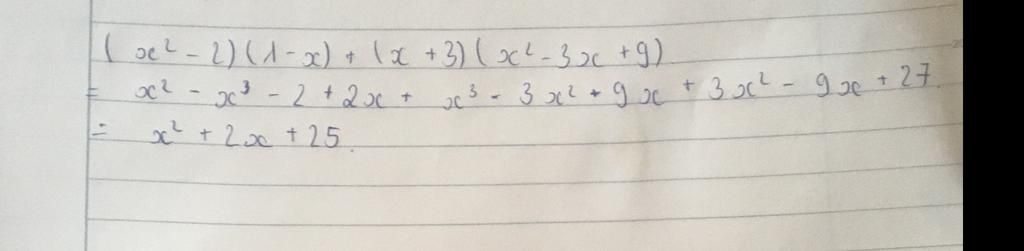 (x² - 2)(1 - x) + (x + 3)(x² - 3x + 9)
= x² - x³ - 2 + 2x + x³ - 3x² + 9x + 3x² - 9x + 27.
= x² + 2x + 25.